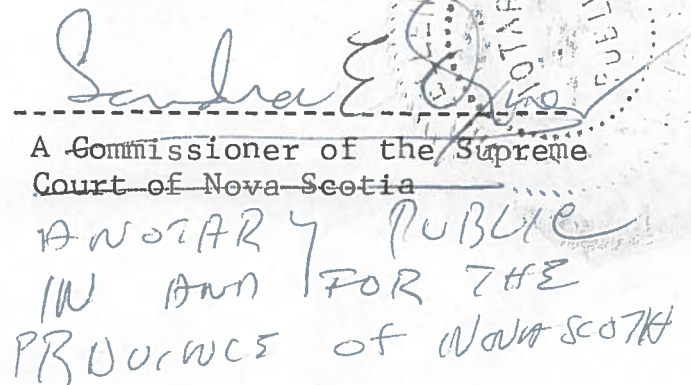 Sandra E
NOTARY
PUBLIC
A Commissioner of the Supreme
Court of Nova Scotia
A NOTARY PUBLIC
IN AND FOR THE
PROVINCE of NOVA SCOTIA